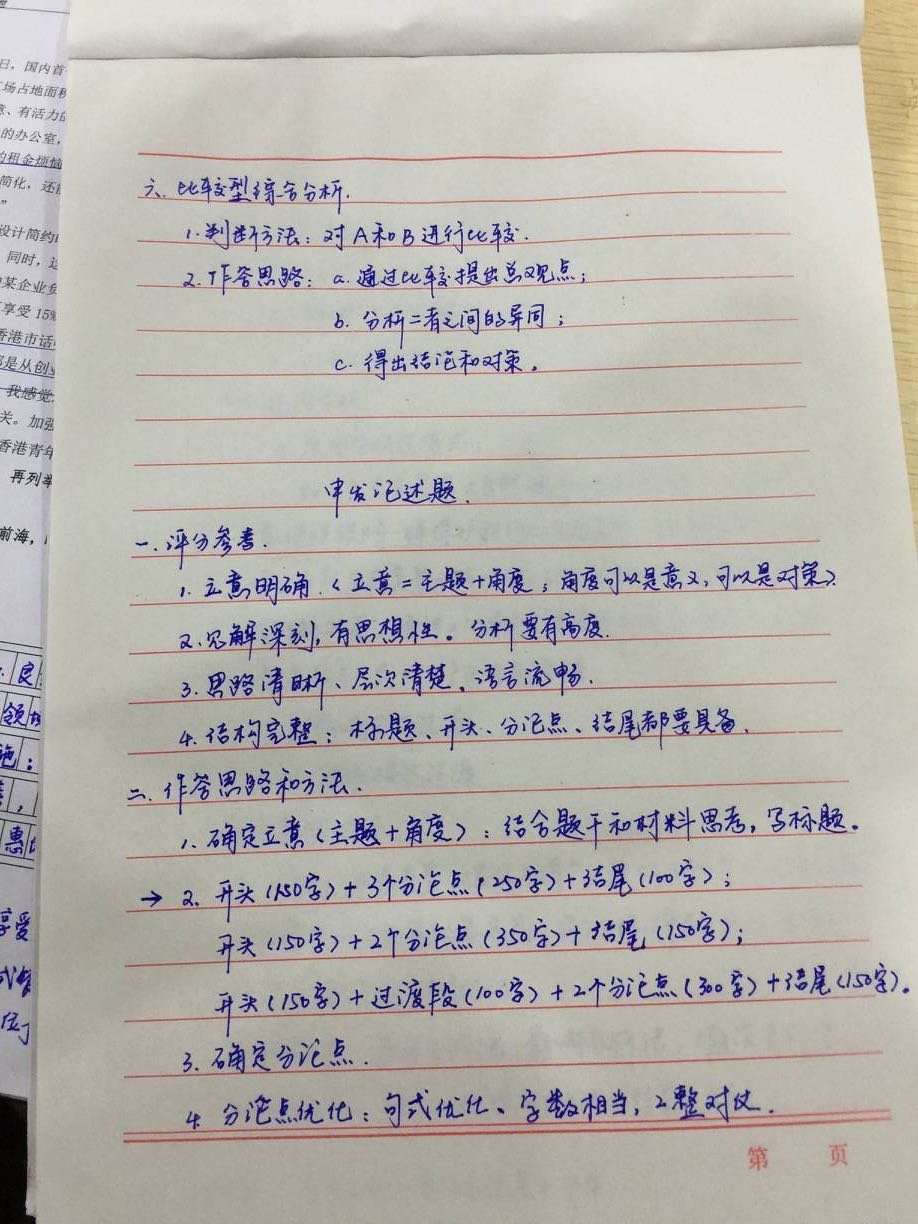 六、比较型综合分析.
1.判断方法：对A和B进行比较.
2.作答思路：a.通过比较提出总观点；
b.分析二者之间的异同；
c.得出结论和对策。
申发论述题.
一.评分参考.
1.立意明确.（立意=主题+角度；角度可以是意义，可以是对策）.
2.见解深刻，有思想性。分析要有高度.
3.思路清晰、层次清楚、语言流畅.
4.结构完整：标题、开头、分论点、结尾都要具备.
二.作答思路和方法.
1.确定立意（主题+角度）：结合题干和材料思考，写标题。
→2.开头（150字）+3个分论点（250字）+结尾（100字）；
开头（150字）+2个分论点（350字）+结尾（150字）；
开头（150字）+过渡段（100字）+2个分论点（300字）+结尾（150字）。
3.确定分论点.
4.分论点优化：句式优化、字数相当，工整对仗.
第 页
日，国内首
场占地面积
意、有活力的
的办公室，
的租金烦恼
简化，还
设计简约
同时，这
某企业负
享受15%
香港市话
都是从创业
我感觉
关。加强
香港青年
再列举
前海，
良
领
施：
惠
享受